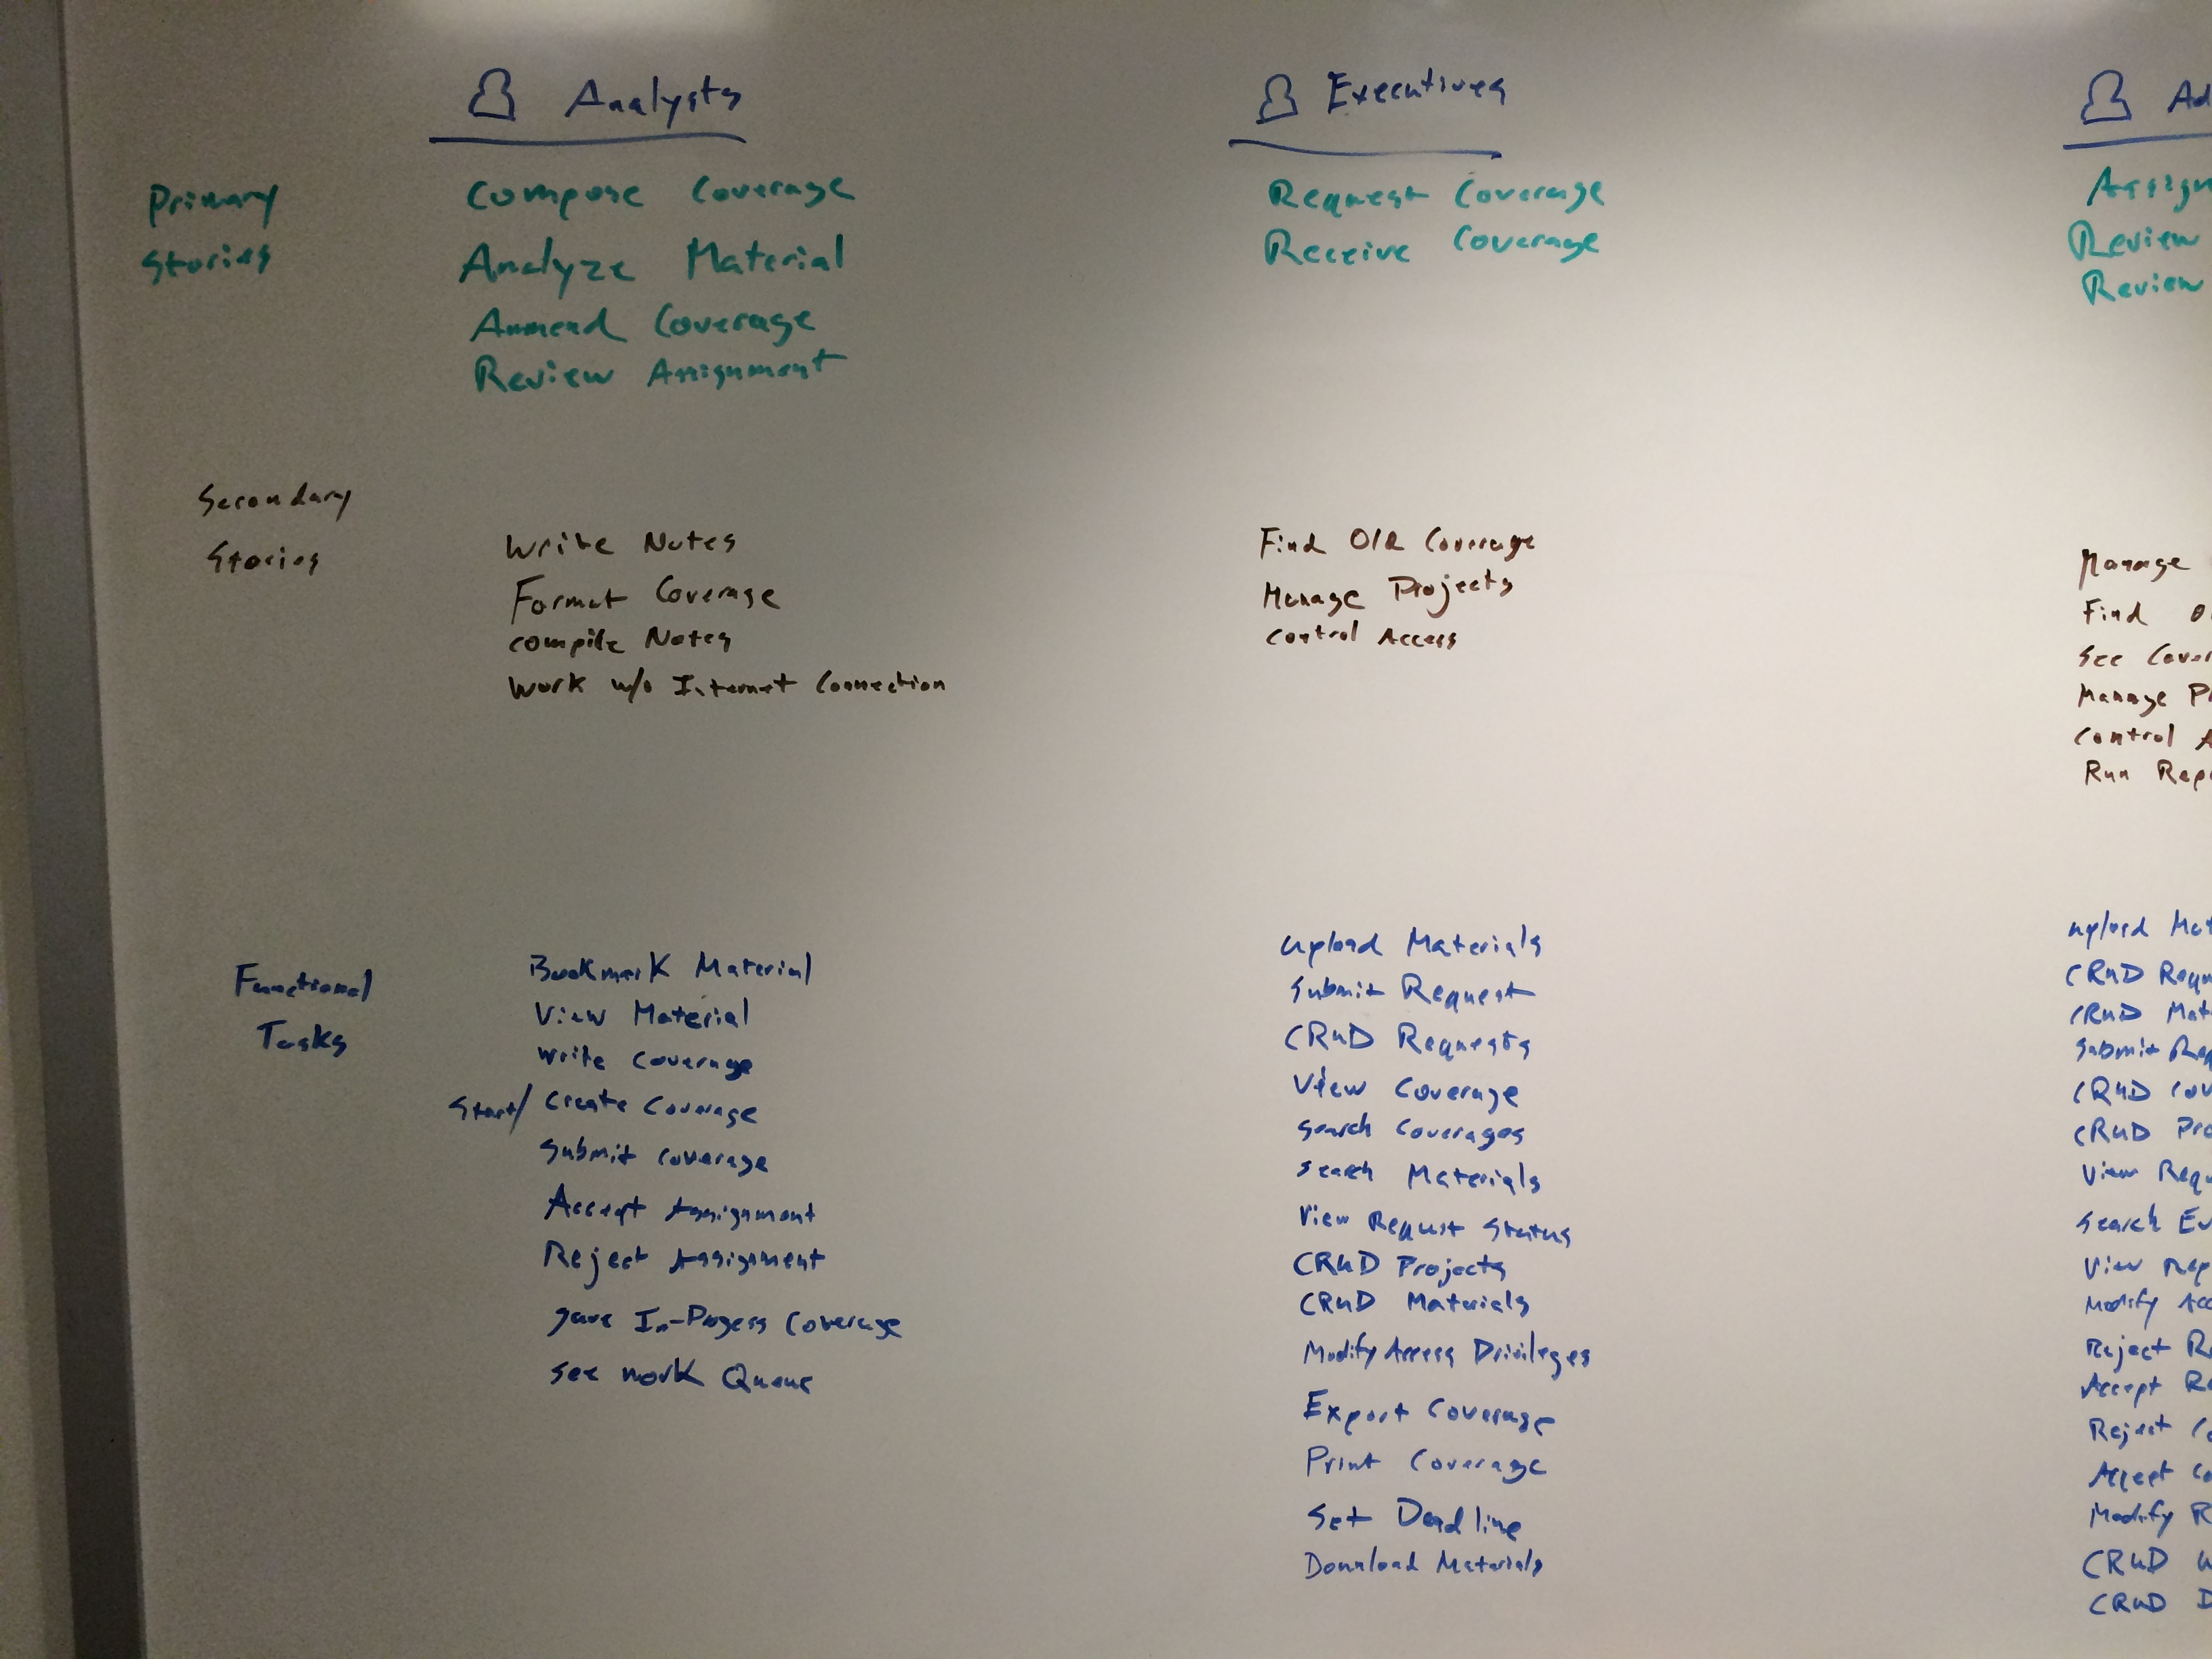 Analysts
Executives
Ad
Primary
Stories
Compose Coverage
Analyze Material
Ammend Coverage
Review Assignment
Request Coverage
Receive Coverage
Assign
Review
Review
Secondary
Stories
Write Notes
Format Coverage
compile Notes
Work w/o Internet Connection
Find Old Coverage
Manage Projects
Control Access
Manage
Find
See Cover
Manage P
Control A
Run Rep
Functional
Tasks
Bookmark Material
View Material
Write Coverage
Start/ Create Coverage
Submit Coverage
Accept Assignment
Reject Assignment
Save In-Progess Coverage
See Work Queue
Upload Materials
Submit Request
CRUD Requests
View Coverage
Search Coverages
Search Materials
View Request Status
CRUD Projects
CRUD Materials
Modify Access Privileges
Export Coverage
Print Coverage
Set Deadline
Download Materials
Upload Mat
CRUD Requ
CRUD Mat
Submit Req
CRUD Cov
CRUD Pro
View Requ
Search Ev
View Rep
Modify Acc
Reject R
Accept Re
Reject Co
Accept Co
Modify R
CRUD
CRUD D